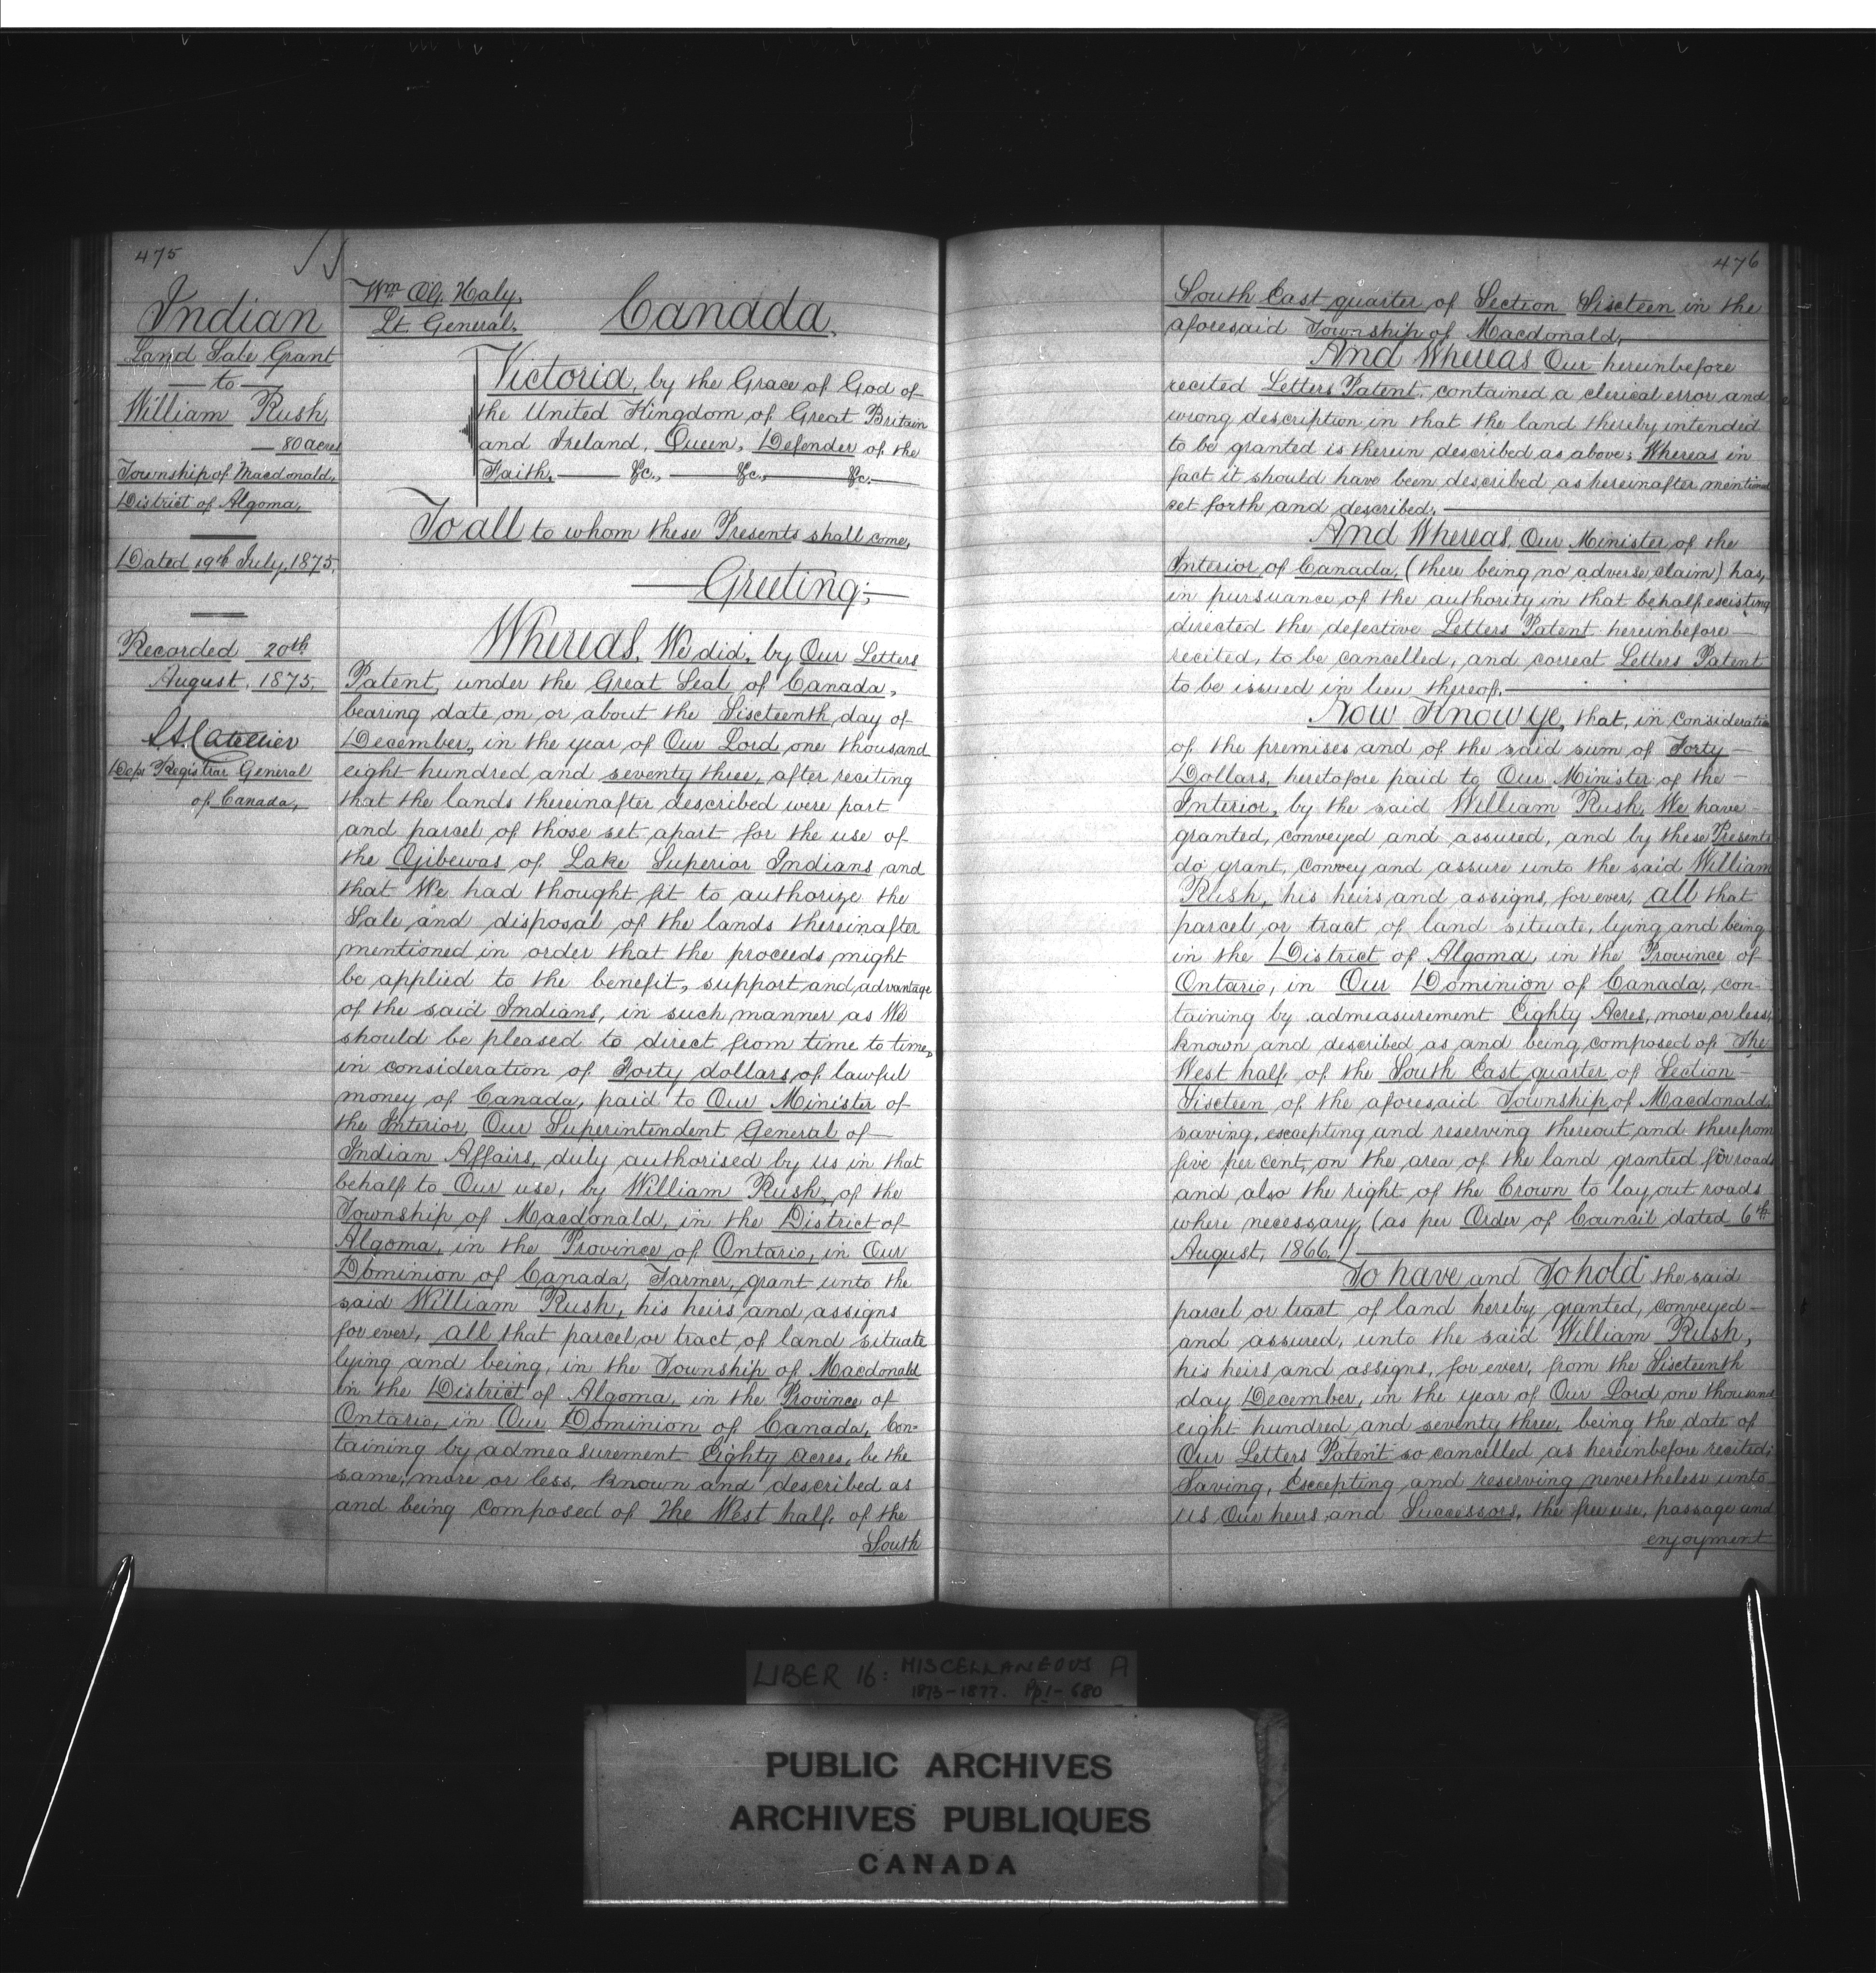 475
Indian
Land Sale Grant
to
William Rush
80 acres
Township of Macdonald,
District of Algoma,
Dated 19th July, 1875.
Recorded 20th
August, 1875.
Dep: Registrar General
of Canada,
Wm O'G. Haly,
Lt. General,
Canada,
Victoria, by the Grace of God of
the United Kingdom of Great Britain
and Ireland, Queen, Defender of the
Faith, &c., &c., &c.
To all to whom these Presents shall come,
Greeting;
Whereas, We did, by Our Letters
Patent, under the Great Seal of Canada,
bearing date on or about the Sixteenth day of
December, in the year of Our Lord one thousand
eight hundred and seventy three, after reciting
that the lands thereinafter described were part
and parcel of those set apart for the use of
the Ojibewas of Lake Superior Indians and
that We had thought fit to authorize the
Sale and disposal of the lands thereinafter
mentioned in order that the proceeds might
be applied to the benefit, support and advantage
of the said Indians, in such manner as We
should be pleased to direct from time to time,
in consideration of Forty dollars of lawful
money of Canada, paid to Our Minister of
the Interior, Our Superintendent General of
Indian Affairs, duly authorised by us in that
behalf to Our use, by William Rush, of the
Township of Macdonald, in the District of
Algoma, in the Province of Ontario, in Our
Dominion of Canada, Farmer, grant unto the
said William Rush, his heirs and assigns
for ever, all that parcel or tract of land situate
lying and being, in the Township of Macdonald
in the District of Algoma, in the Province of
Ontario, in Our Dominion of Canada, Con-
taining by admeasurement Eighty acres, be the
same, more or less, known and described as
and being composed of the West half, of the
South
476
South East quarter of Section Sixteen in the
aforesaid Township of Macdonald,
And Whereas Our hereinbefore
recited Letters Patent, contained a clerical error and
wrong description in that the land thereby intended
to be granted is therein described as above; Whereas in
fact it should have been described as hereinafter mentioned
set forth and described.
And Whereas, Our Minister of the
Interior of Canada, (there being no adverse claim) has,
in pursuance of the authority in that behalf existing
directed the defective Letters Patent hereinbefore
recited, to be cancelled, and correct Letters Patent
to be issued in lieu thereof.
Now Know ye, that, in consideration
of the premises and of the said sum of Forty
Dollars, heretofore paid to Our Minister of the
Interior, by the said William Rush, We have
granted, conveyed and assured, and by these Presents
do grant, convey and assure unto the said William
Rush, his heirs and assigns, for ever, all that
parcel or tract of land situate, lying and being
in the District of Algoma, in the Province of
Ontario, in Our Dominion of Canada, con-
taining by admeasurement Eighty Acres, more or less,
known and described as and being composed of The
West half of the South East quarter of Section
Sixteen of the aforesaid Township of Macdonald,
saving, excepting and reserving thereout and therefrom
five per cent, on the area of the land granted for roads
and also the right of the Crown to lay out roads
where necessary, (as per Order of Council dated 6th
August, 1866.)
To have and To hold the said
parcel or tract of land hereby granted, conveyed
and assured, unto the said William Rush,
his heirs and assigns, for ever, from the Sixteenth
day December, in the year of Our Lord one thousand
eight hundred and seventy three, being the date of
Our Letters Patent so cancelled as hereinbefore recited;
Saving, Excepting and reserving nevertheless unto
us Our heirs and Successors, the free use, passage and
enjoyment
LIBER 16: MISCELLANEOUS A
1873-1877. Pp 1-680
PUBLIC ARCHIVES
ARCHIVES PUBLIQUES
CANADA